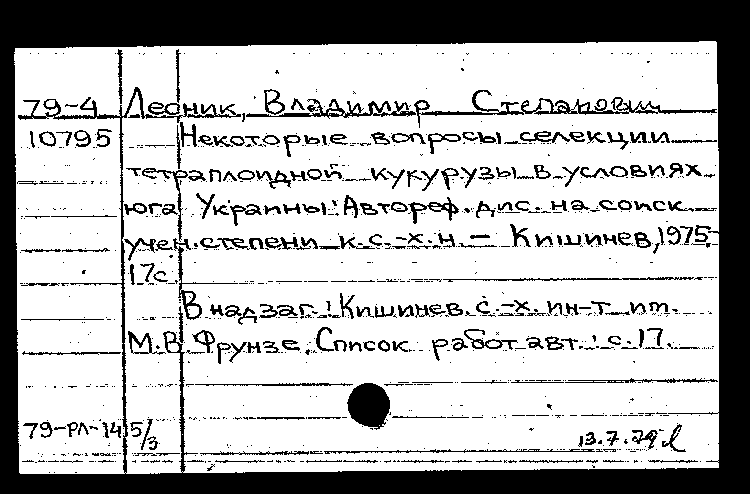 79-4 Лесник, Владимир Степанович
10795 Некоторые вопросы селекции
тетраплоидной кукурузы в условиях
юга Украины: Автореф. дис. на соиск
учен. степени к.с.-х.н. — Кишинев, 1975-
17с.
В надзаг.: Кишинев. с.-х. ин-т им.
М.В. Фрунзе. Список работ авт.: с. 17.
79-РЛ-145/3 13.7.79